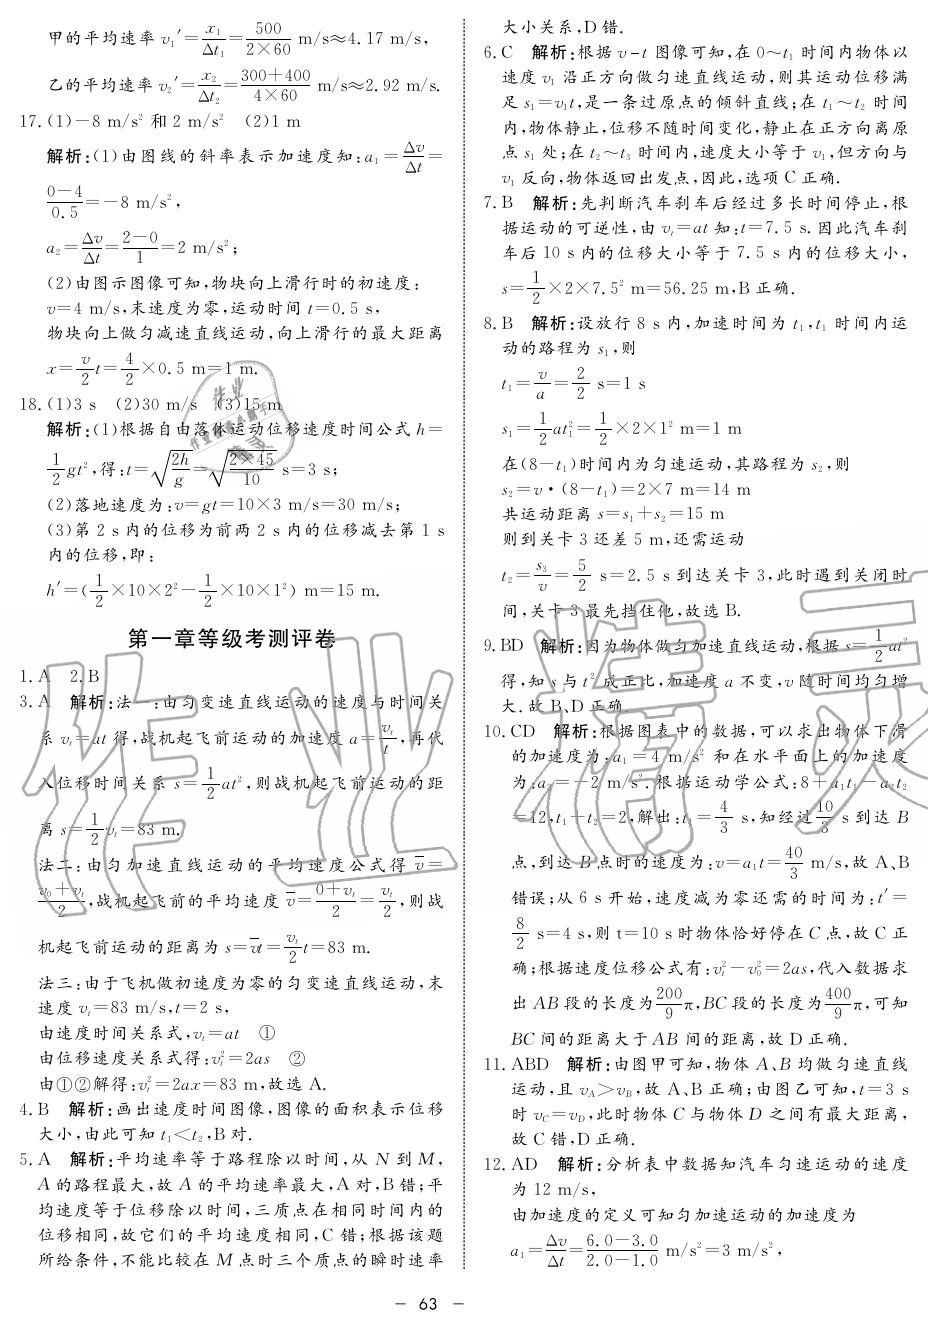 甲的平均速率 v₁′=x₁/Δt₁=500/(2×60) m/s≈4.17 m/s,
乙的平均速率 v₂′=x₂/Δt₂=(300+400)/(4×60) m/s≈2.92 m/s.
17.(1)-8 m/s² 和 2 m/s²　(2)1 m
解析:(1)由图线的斜率表示加速度知:a₁=Δv/Δt=
(0-4)/0.5=-8 m/s²,
a₂=Δv/Δt=(2-0)/1=2 m/s²;
(2)由图示图像可知,物块向上滑行时的初速度:
v=4 m/s,末速度为零,运动时间 t=0.5 s,
物块向上做匀减速直线运动,向上滑行的最大距离
x=v/2 t=4/2×0.5 m=1 m.
18.(1)3 s　(2)30 m/s　(3)15 m
解析:(1)根据自由落体运动位移速度时间公式 h=
1/2 gt²,得:t=√(2h/g)=√(2×45/10) s=3 s;
(2)落地速度为:v=gt=10×3 m/s=30 m/s;
(3)第 2 s 内的位移为前两 2 s 内的位移减去第 1 s
内的位移,即:
h′=(1/2×10×2²-1/2×10×1²) m=15 m.
第一章等级考测评卷
1.A　2.B
3.A　解析:法一:由匀变速直线运动的速度与时间关
系 vₜ=at 得,战机起飞前运动的加速度 a=vₜ/t,再代
入位移时间关系 s=1/2 at²,则战机起飞前运动的距
离 s=1/2 vₜt=83 m.
法二:由匀加速直线运动的平均速度公式得 v̄=
(v₀+vₜ)/2,战机起飞前的平均速度 v̄=(0+vₜ)/2=vₜ/2,则战
机起飞前运动的距离为 s=v̄t=vₜ/2 t=83 m.
法三:由于飞机做初速度为零的匀变速直线运动,末
速度 vₜ=83 m/s,t=2 s,
由速度时间关系式,vₜ=at　①
由位移速度关系式得:vₜ²=2as　②
由①②解得:vₜ²=2ax=83 m,故选 A.
4.B　解析:画出速度时间图像,图像的面积表示位移
大小,由此可知 t₁<t₂,B 对.
5.A　解析:平均速率等于路程除以时间,从 N 到 M,
A 的路程最大,故 A 的平均速率最大,A 对,B 错;平
均速度等于位移除以时间,三质点在相同时间内的
位移相同,故它们的平均速度相同,C 错;根据该题
所给条件,不能比较在 M 点时三个质点的瞬时速率
大小关系,D 错.
6.C　解析:根据 v-t 图像可知,在 0~t₁ 时间内物体以
速度 v₁ 沿正方向做匀速直线运动,则其运动位移满
足 s₁=v₁t,是一条过原点的倾斜直线;在 t₁~t₂ 时间
内,物体静止,位移不随时间变化,静止在正方向离原
点 s₁ 处;在 t₂~t₃ 时间内,速度大小等于 v₁,但方向与
v₁ 反向,物体返回出发点,因此,选项 C 正确.
7.B　解析:先判断汽车刹车后经过多长时间停止,根
据运动的可逆性,由 vₜ=at 知:t=7.5 s.因此汽车刹
车后 10 s 内的位移大小等于 7.5 s 内的位移大小,
s=1/2×2×7.5² m=56.25 m,B 正确.
8.B　解析:设放行 8 s 内,加速时间为 t₁,t₁ 时间内运
动的路程为 s₁,则
t₁=v/a=2/2 s=1 s
s₁=1/2 at₁²=1/2×2×1² m=1 m
在(8-t₁)时间内为匀速运动,其路程为 s₂,则
s₂=v·(8-t₁)=2×7 m=14 m
共运动距离 s=s₁+s₂=15 m
则到关卡 3 还差 5 m,还需运动
t₂=s₃/v=5/2 s=2.5 s 到达关卡 3,此时遇到关闭时
间,关卡 3 最先挡住他,故选 B.
9.BD　解析:因为物体做匀加速直线运动,根据 s=1/2 at²
得,知 s 与 t² 成正比,加速度 a 不变,v 随时间均匀增
大.故 B、D 正确.
10.CD　解析:根据图表中的数据,可以求出物体下滑
的加速度为:a₁=4 m/s² 和在水平面上的加速度
为:a₂=-2 m/s².根据运动学公式:8+a₁t₁-a₂t₂
=12,t₁+t₂=2,解出:t₁=4/3 s,知经过10/3 s 到达 B
点,到达 B 点时的速度为:v=a₁t=40/3 m/s,故 A、B
错误;从 6 s 开始,速度减为零还需的时间为:t′=
8/2 s=4 s,则 t=10 s 时物体恰好停在 C 点,故 C 正
确;根据速度位移公式有:vₜ²-v₀²=2as,代入数据求
出 AB 段的长度为200/9 π,BC 段的长度为400/9 π,可知
BC 间的距离大于 AB 间的距离,故 D 正确.
11.ABD　解析:由图甲可知,物体 A、B 均做匀速直线
运动,且 v_A>v_B,故 A、B 正确;由图乙可知,t=3 s
时 v_C=v_D,此时物体 C 与物体 D 之间有最大距离,
故 C 错,D 正确.
12.AD　解析:分析表中数据知汽车匀速运动的速度
为 12 m/s,
由加速度的定义可知匀加速运动的加速度为
a₁=Δv/Δt=(6.0-3.0)/(2.0-1.0) m/s²=3 m/s²,
— 63 —
作业精灵